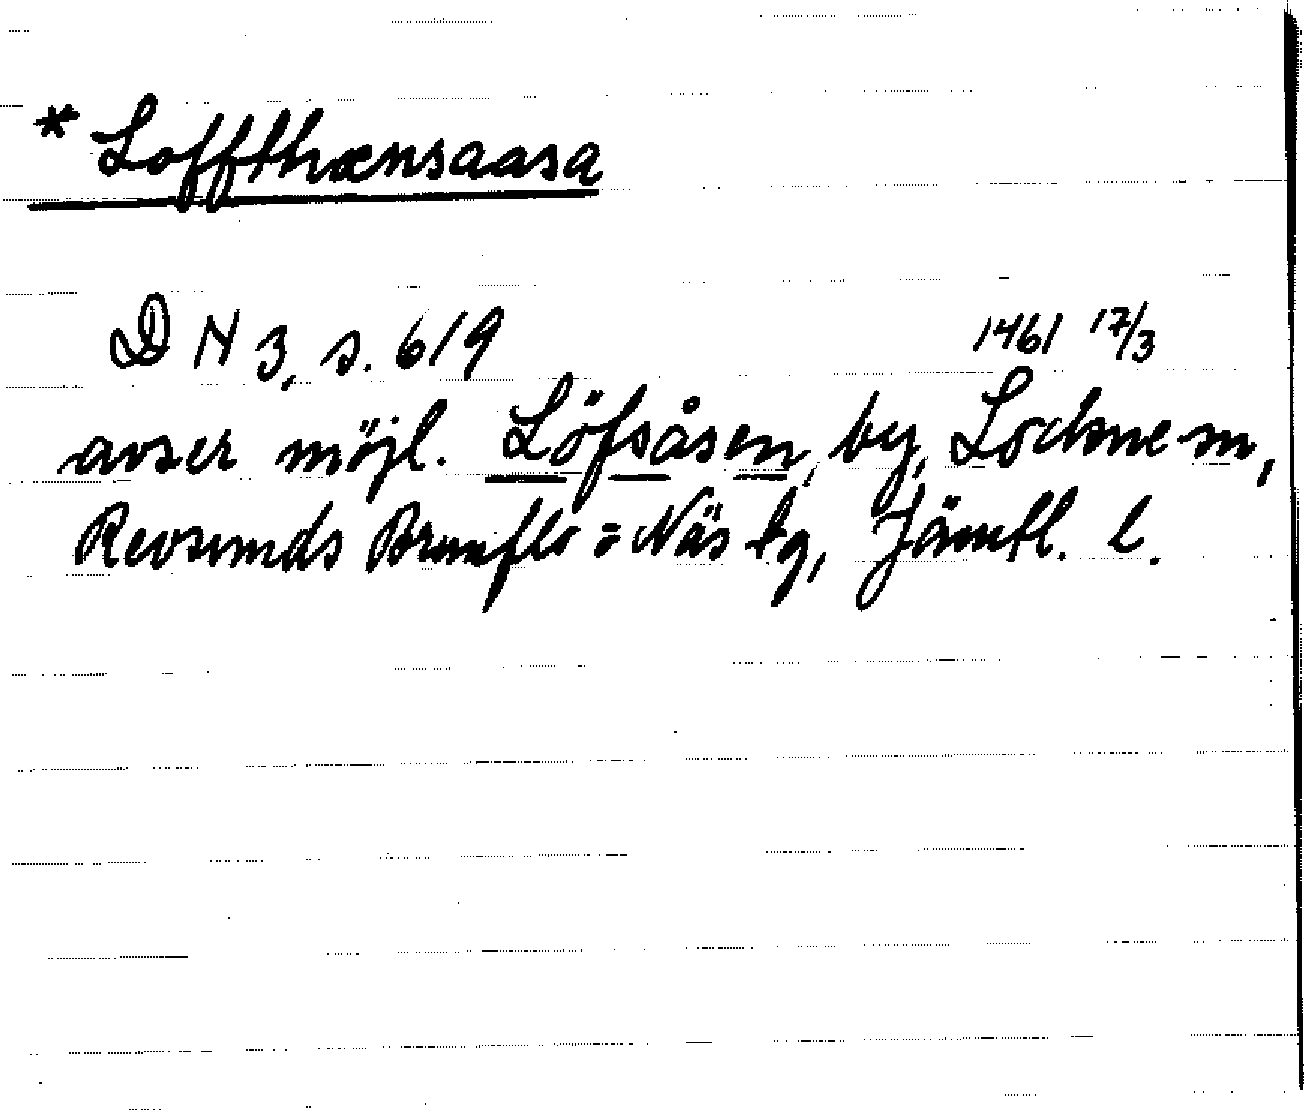 * Loffthænsaasa
D N 3, s. 619 1461 17/3
avser möjl. Löfsåsen, by, Lockne sn,
Revsunds Brunflo o Näs tg, Jämtl. l.